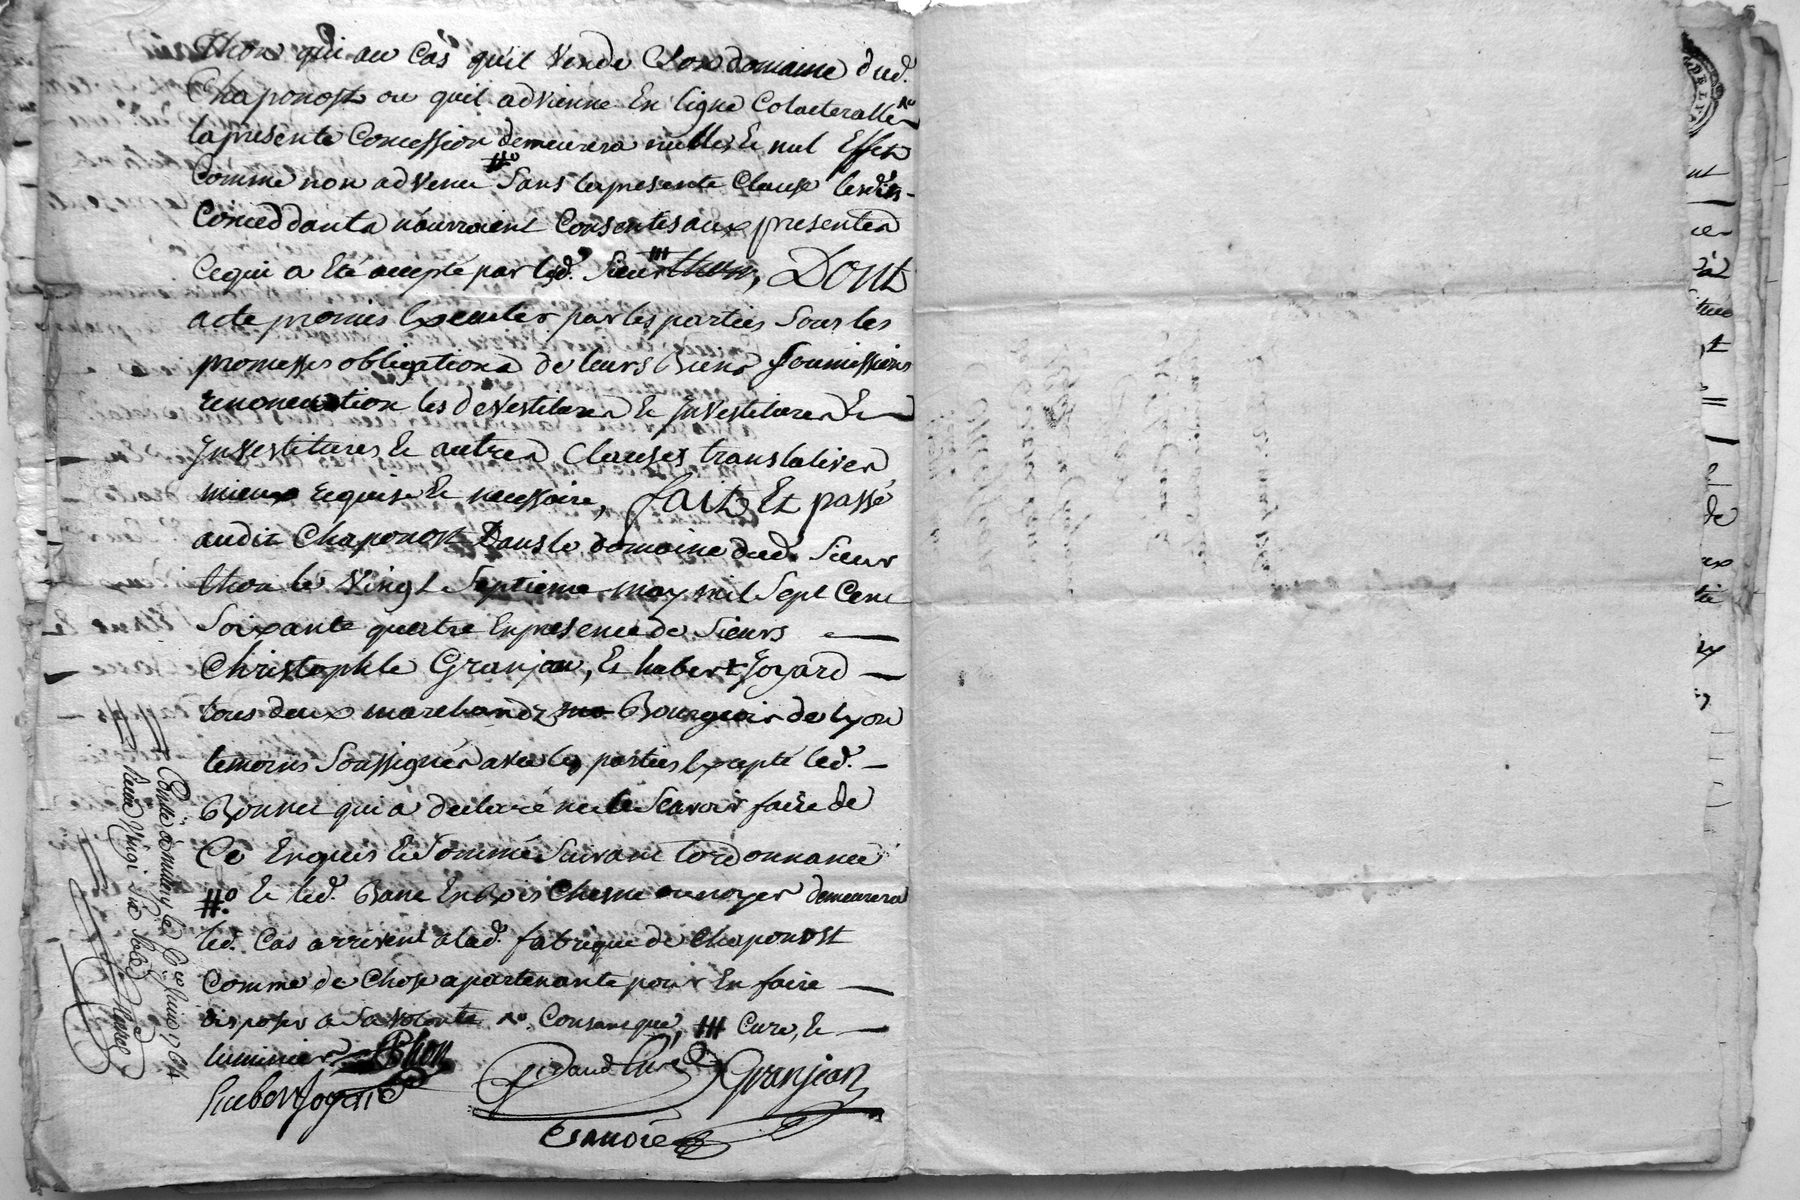 thon qui au cas qu'il vende son domaine dud.
Chaponost ou quil advienne En ligne Colateralle ro
la presente Concession demeurera nulle, & nul Effet
Comme non advenu #o Sans la presente Clause lesd. srs
Conceddants n'auroient Consentis aux presentes
Ce qui a été accepté par led. Sieur ### thon, Dont
acte promis Executer par les parties Sous les
promesses obligations de leurs Biens Soumissions
renonciation les devestitures & Investitures &
Investitures & autres Clauses translatives
mieux requise & necessaire, fait Et passé
audit Chaponost Dans le domaine dud. Sieur
thon le vingt Septieme may mil Sept Cent
Soixante quatre En presence de Sieurs
Christophle Granjean, & hubert Joyard
tous deux marchands Bourgeois de Lyon
temoins Soussignés avec les parties Excepté led.
Bonnet qui a declaré ne le Scavoir faire de
Ce Enquis & Sommé Suivant l'ordonnance
#o & led. Banc En Bois Chesne ou noyer demeurera
led. Cas arrivent a lad. fabrique de Chaponost
Comme de Chose apartenante pour En faire
disposer a Sa volonté ro. Consanque, ### Curé, &
luminier Thon
hubert Joyard
Granjean
Controlé a millery le juin 1764
Reçu vingt six sols